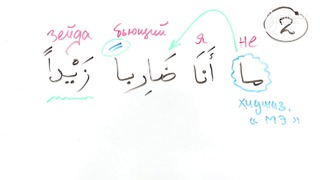 зейда бьющий я не 2
ما أَنَا ضَارِباً زَيْداً
хиджаз.
« мэ »